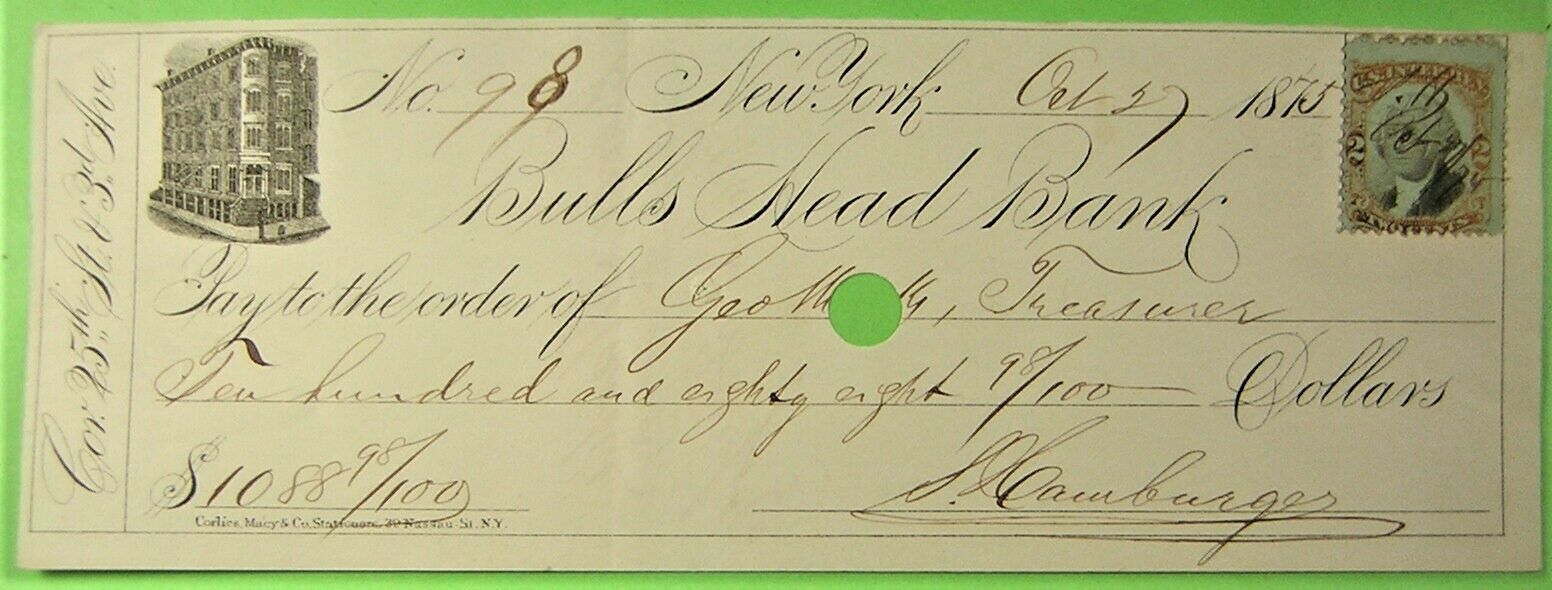 Cor. 25th St. & 3d Ave.
No. 98 New York Oct 27 1875
Bulls Head Bank
Pay to the order of Geo , Treasurer
Ten hundred and eighty eight 98/100 Dollars
$1088 98/100
S. Hamburger
Corlies, Macy & Co. Stationers, 39 Nassau St. N.Y.